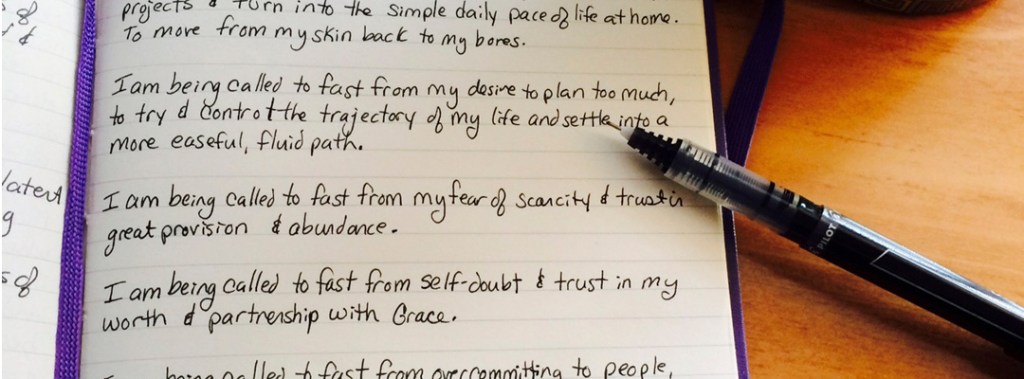 s of
& 
latent
g
s of
projects & turn into the simple daily pace of life at home.
To move from my skin back to my bones.
I am being called to fast from my desire to plan too much,
to try & control the trajectory of my life and settle into a
more easeful, fluid path.
I am being called to fast from my fear of scarcity & trust in
great provision & abundance.
I am being called to fast from self-doubt & trust in my
worth & partnership with Grace.
being called to fast from overcommitting to people,
PILOT